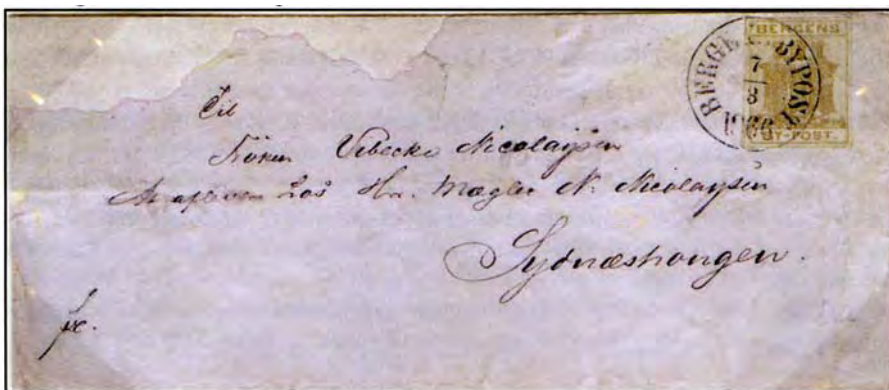 BERGENS
BY-POST.
BERGEN BYPOST
7
8
Til
Fröken Vibecke Nicolaÿsen
Hos Hr. Mægler N. Nicolaÿsen
Sydnæshougen.
fr.